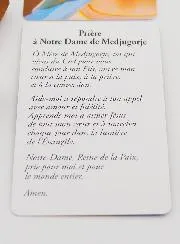 Prière
à Notre Dame de Medjugorje
Ô Mère de Medjugorje, toi qui
viens du Ciel pour nous
conduire à ton Fils, ouvre mon
cœur à la paix, à la prière
et à la conversion.
Aide-moi à répondre à ton appel
avec amour et fidélité.
Apprends-moi à aimer
de tout mon cœur et à
chaque jour dans la lumière
de l'Évangile.
Notre-Dame, Reine de la Paix,
prie pour moi et pour
le monde entier.
Amen.